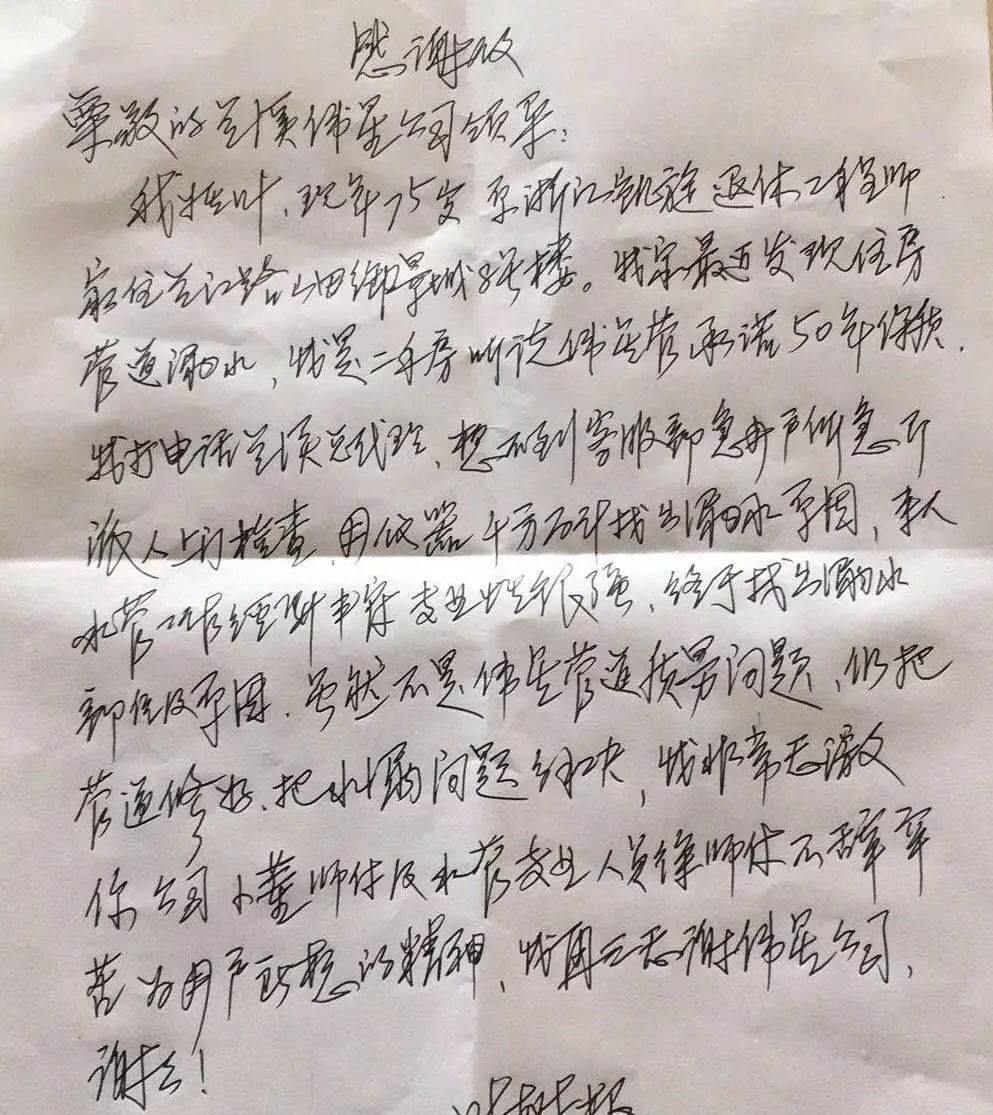 感谢信
尊敬的兰溪伟星公司领导：
我姓叶、现年75岁 原浙江凯旋退休工程师.
家住兰江路 山田御景城3号楼。我家最近发现住房
管道漏水，我是二手房听说伟星管承诺50年保质.
我打电话兰溪总代理、想不到客服部急用户所急即
派人上门检查 用仪器千方百计找出漏水原因，来人
水管工作经验丰富专业性很强、终于找出漏水
部位及原因. 虽然不是伟星管道质量问题、仍把
管道修好、把水漏问题解决，我非常感激
你公司小董师付及水管专业人员徐师付不辞辛
苦为用户所想的精神，我再三感谢伟星公司，
谢谢！